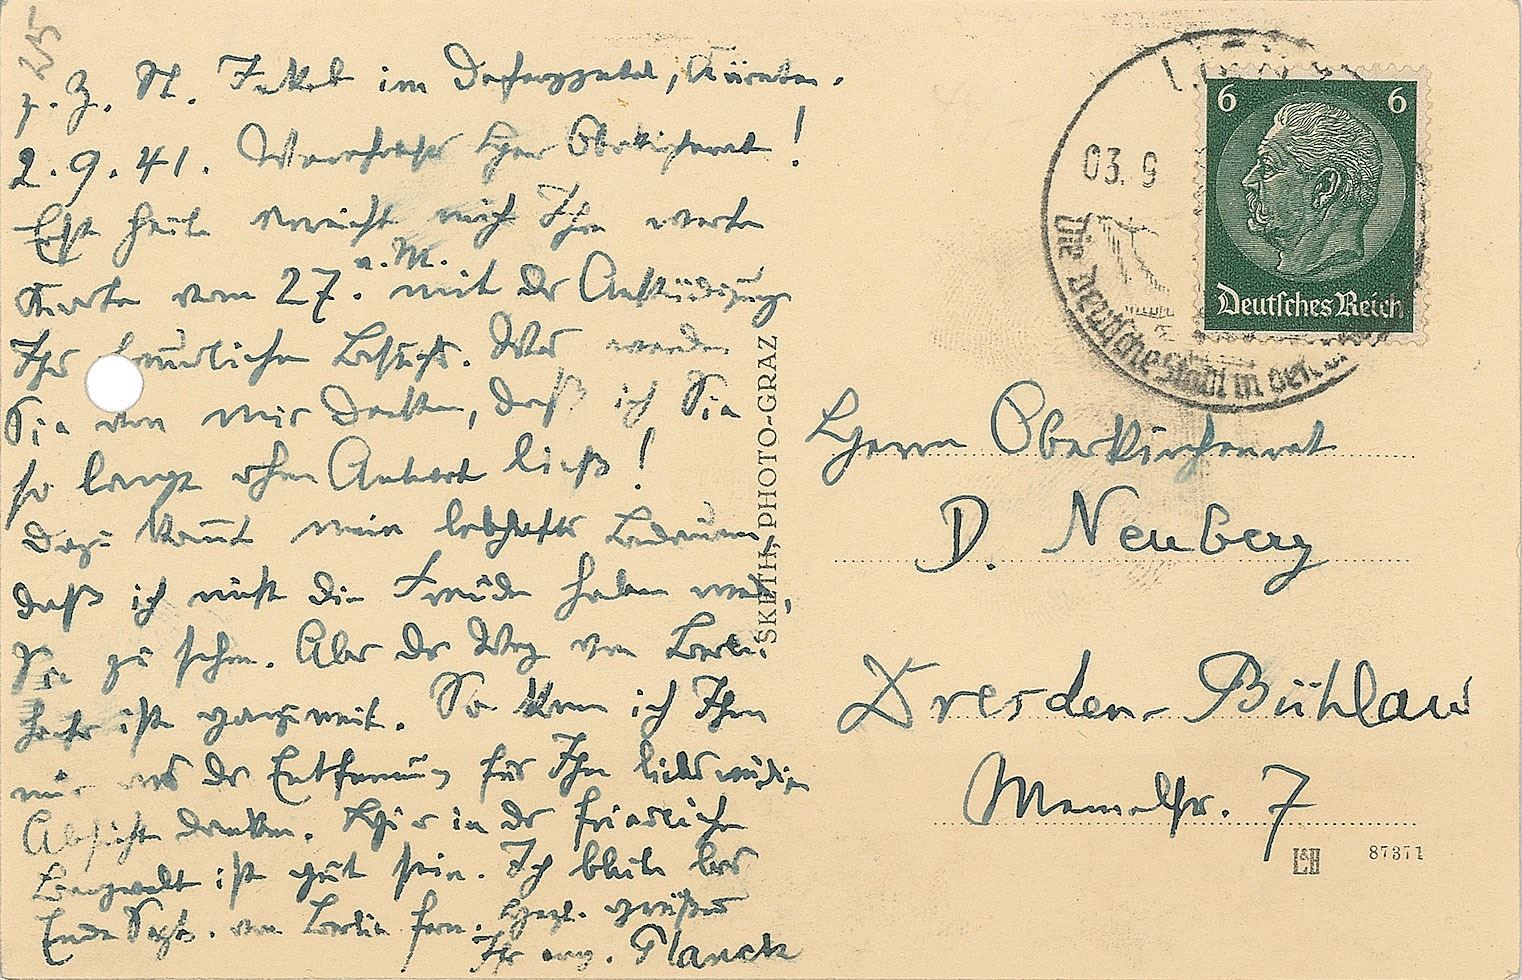 215
z. Z. St. Jakob im Defereggental, Kärnten.
2.9.41. Verehrter Herr Oberkirchenrat!
Erst heute erreicht mich Ihre werte
Karte vom 27. v. M. mit der Ankündigung
Ihres freundlichen Besuchs. Was werden
Sie von mir denken, daß ich Sie
so lange ohne Antwort ließ!
Dazu kommt mein lebhaftes Bedauern,
daß ich nicht die Freude haben werde,
Sie zu sehen. Aber der Weg von Berlin
hierher ist gar zu weit. So kann ich Ihnen
nur aus der Entfernung für Ihre liebenswürdige
Absicht danken. Hier in der friedlichen
Bergwelt ist gut sein. Ich bleibe bis
Ende Sept. von Berlin fern. Herzl. grüßend
Ihr erg. Planck
SKETH, PHOTO-GRAZ
03.9
Die deutsche Stadt in den
6 6
Deutsches Reich
Herrn Oberkirchenrat
D. Neuberg
Dresden-Bühlau
Memelstr. 7
L&H 87371